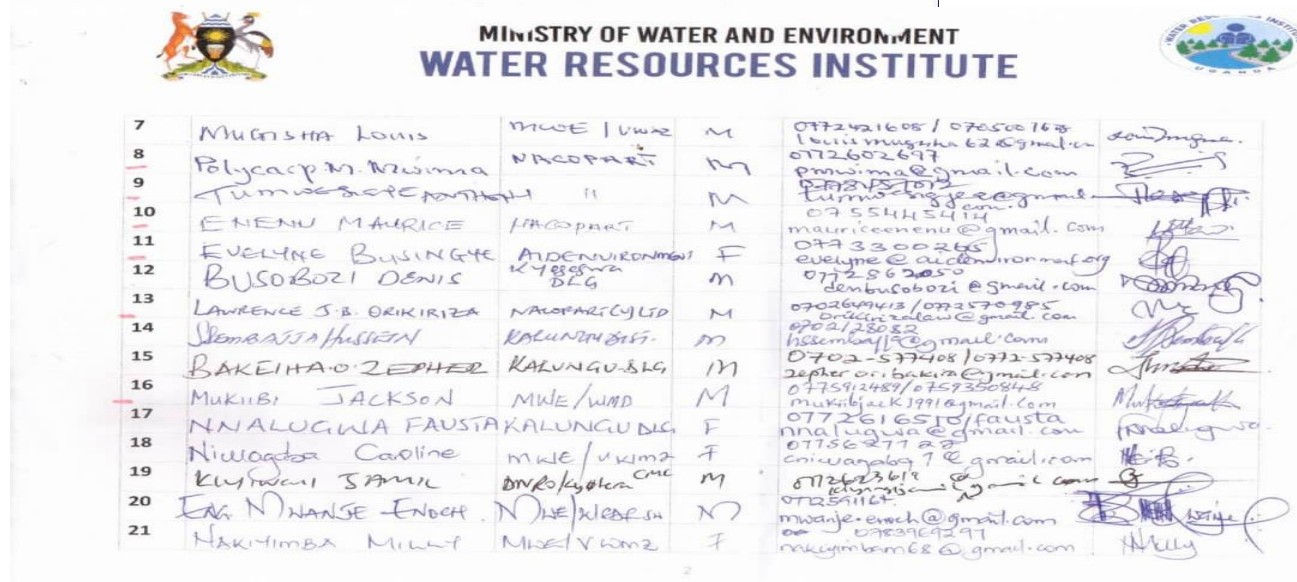 MINISTRY OF WATER AND ENVIRONMENT
WATER RESOURCES INSTITUTE
UGANDA
7 MUGISHA LOUIS MWE / VWMZ M 0772421608 / 070500768
louismugisha62@gmail.cm
8 Polycarp M. Mwima NACOPART M 0772602697
pmwima@gmail.com
9 M
10 ENENU MAURICE NACOPART M 0755445414
mauriceenenu@gmail.com
11 EVELYNE BUSINGYE AIDENVIRONMENT F 0773300265
evelyne@aidenvironment.org
12 BUSOBOZI DENIS Kyegegwa DLG M 0772862050
denbusobozi@gmail.com
13 LAWRENCE J.B. ORIKIRIZA NACOPART(U)LTD M 0702649413 /0772570985
orikirizalaw@gmail.com
14 SSEMBAJJA HUSSEIN KALUNGU DIST. M 0702128082
15 BAKEIHA.O.ZEPHER KALUNGU.DLG M 0702-577408/0772-577408
16 MUKIIBI JACKSON MWE/WMD M 0775912489/0759350848
mukiibijack1991@gmail.com
17 NNALUGWA FAUSTA KALUNGU DLG F 0772616510/fausta
nnalugwa@gmail.com
18 Niwagaba Caroline MWE/VWMZ F 0775627722
19 M 0772623619
20 ENG. MWANJE ENOCH. M 0772591167
mwanje.enoch@gmail.com
21 NAKIYIMBA MILLY MWE/VWMZ F 0783969297
nakiyimbam68@gmail.com
2